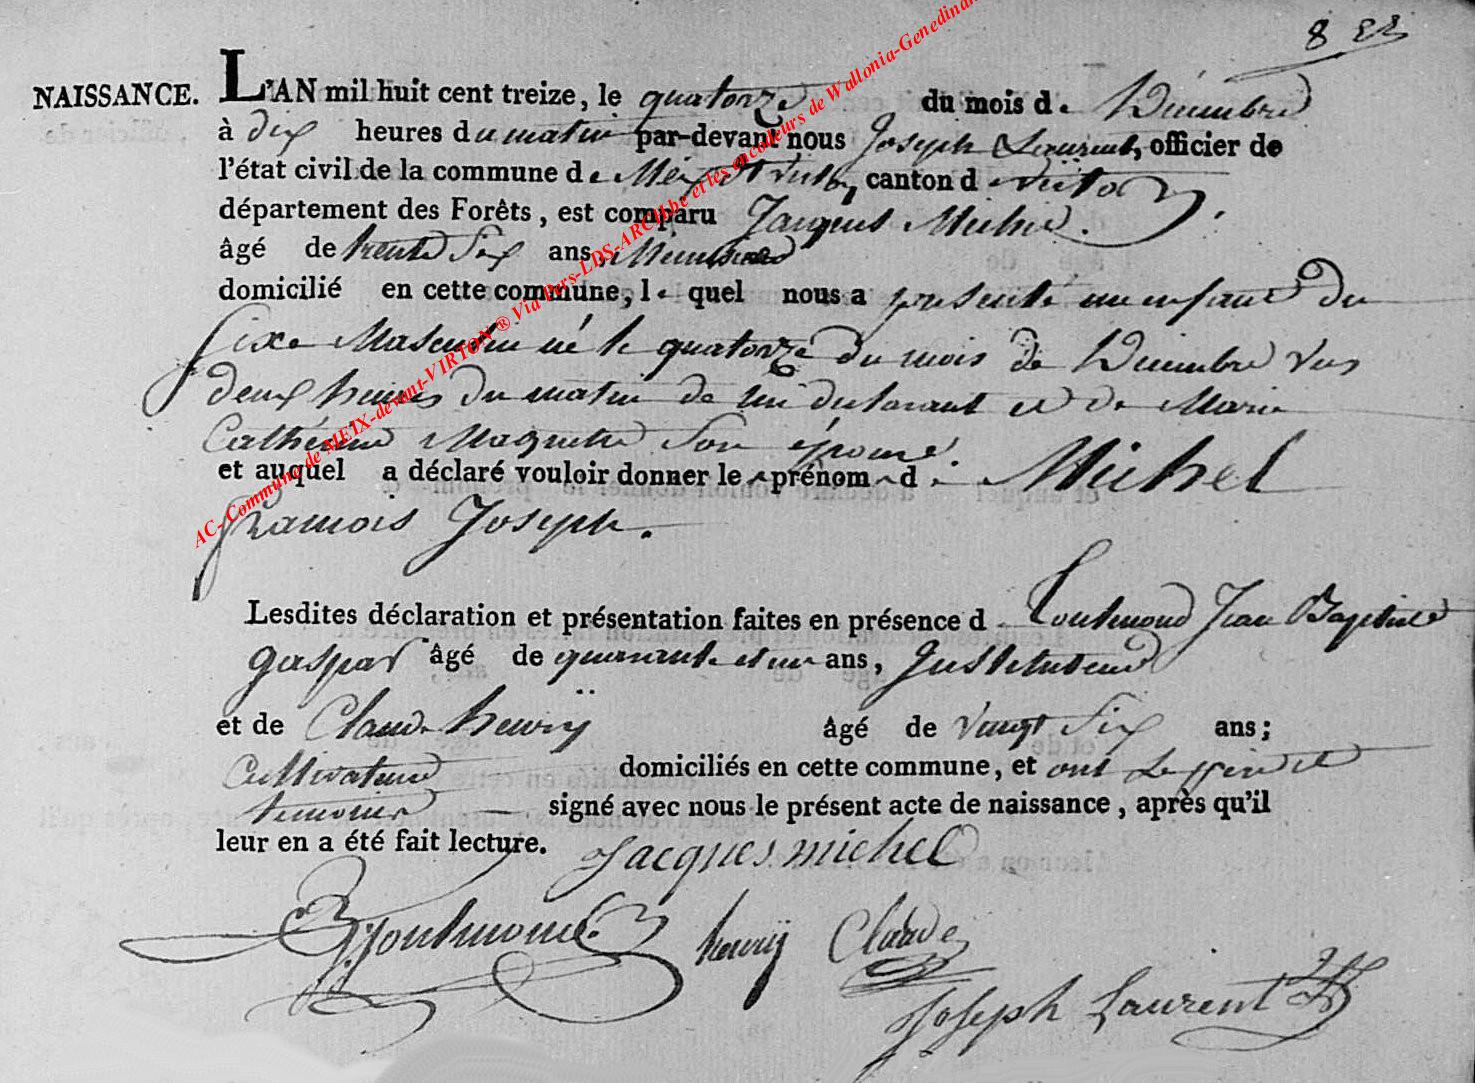 8
NAISSANCE. L'AN mil huit cent treize, le quatorze du mois de Décembre
à dix heures du matin par-devant nous Joseph Laurent, officier de
l'état civil de la commune de Meix dt virton, canton de virton
département des Forêts, est comparu Jacques Michel.
âgé de trente Six ans,
domicilié en cette commune, le quel nous a présenté un enfant du
sixe Masculin né le quatorze du mois de Décembre vers
deux heures du matin de lui declarant et de Marie
Cathérine Maquette Son épouse.
et auquel a déclaré vouloir donner le prénom de Michel
François Joseph.
Lesdites déclaration et présentation faites en présence de Toutmond Jean Baptiste
gaspar âgé de quarante et un ans, Instituteur
et de Claude henrÿ âgé de vingt Six ans;
Cultivateur domiciliés en cette commune, et ont Le père et
temoins signé avec nous le présent acte de naissance, après qu'il
leur en a été fait lecture. Jacques michel
Toutmond. henrÿ Claude
Joseph Laurent
AC-Commune de MEIX-devant-VIRTON ® Via Pers-LDS-ARCHbe et les encodeurs de Wallonia-Genedinan